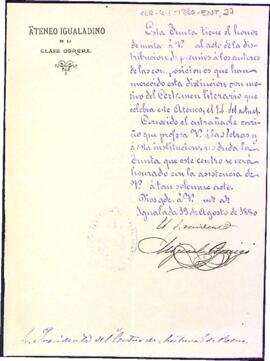 ATENEO IGUALADINO
DE LA
CLASE OBRERA.
Esta Junta tiene el honor
de invitar á V. al acto de la dis-
tribucion de premios á los autores
de las composiciones que han
merecido esta distincion con mo-
tivo del Certamen literario que
celebra este Ateneo, el 24 del actual.
Conocido el entrañable cari-
ño que profesa V. á las letras y
á esta institucion, no duda la
Junta que este centro se verá
honrado con la asistencia de
V. á tan solemne acto.
Dios gde. á V. ms. as.
Igualada 19 de Agosto de 1880
El Presidente
Sr. Presidente del Centro de Lectura de Reus.